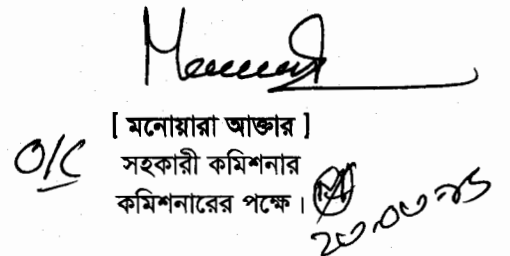 [ মনোয়ারা আক্তার ]
O/C সহকারী কমিশনার
কমিশনারের পক্ষে।